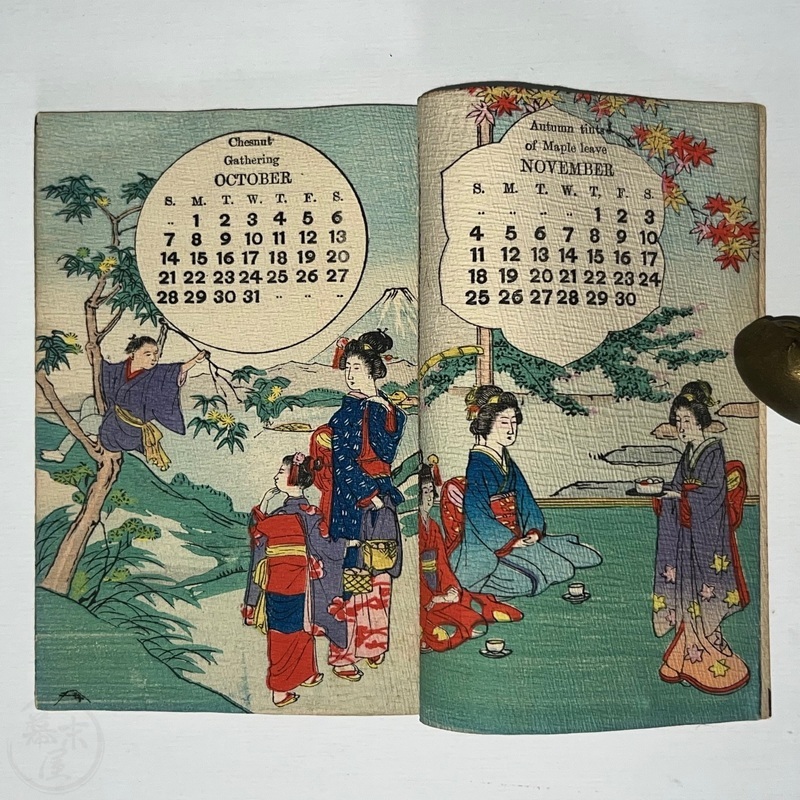 Chesnut
Gathering
OCTOBER
S. M. T. W. T. F. S.
.. 1 2 3 4 5 6
7 8 9 10 11 12 13
14 15 16 17 18 19 20
21 22 23 24 25 26 27
28 29 30 31 .. .. ..
Autumn tints
of Maple leave
NOVEMBER
S. M. T. W. T. F. S
.. .. .. .. 1 2 3
4 5 6 7 8 9 10
11 12 13 14 15 16 17
18 19 20 21 22 23 24
25 26 27 28 29 30
幕末屋